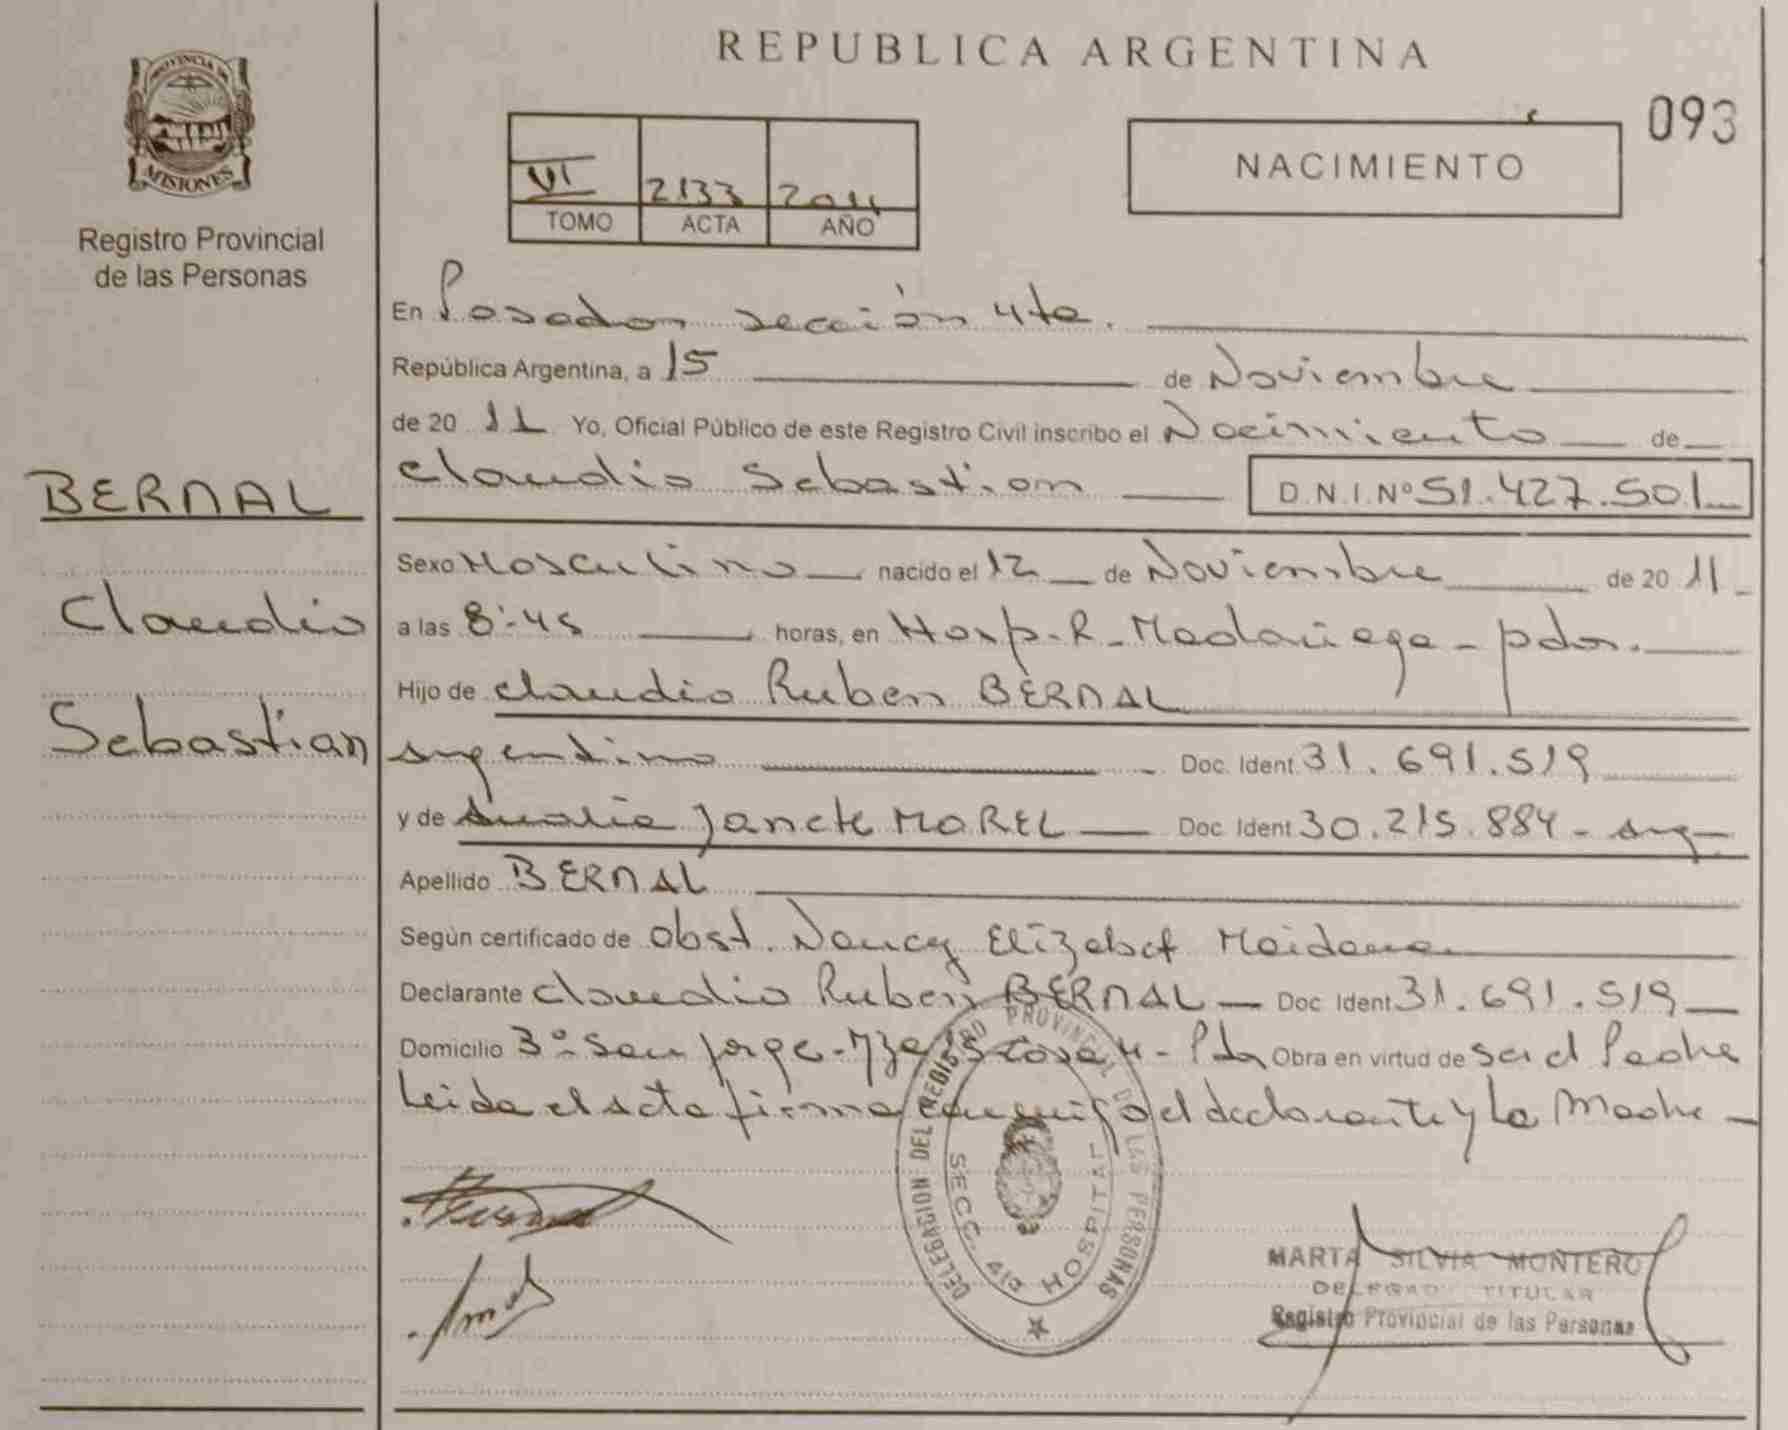 REPUBLICA ARGENTINA
PROVINCIA DE
MISIONES
Registro Provincial
de las Personas
093
VI 2133 2011
TOMO ACTA AÑO
NACIMIENTO
En Posadas sección 4ta.
República Argentina, a 15 de Noviembre
de 20 11 Yo, Oficial Público de este Registro Civil inscribo el Nacimiento de
Claudio Sebastian D.N.I.Nº 51.427.501
BERNAL
Claudio
Sebastian
Sexo Masculino nacido el 12 de Noviembre de 20 11
a las 8:45 horas, en Hosp. R. Madariaga - pdas.
Hijo de Claudio Ruben BERNAL
argentino Doc. Ident. 31.691.519
y de Janete MOREL Doc. Ident 30.215.884 - arg
Apellido BERNAL
Según certificado de Obst. Nancy Elizabet Maidana
Declarante Claudio Ruben BERNAL Doc Ident 31.691.519
Domicilio 3º San Jorge - casa 4 - Pdas Obra en virtud de ser el Padre
Leida el acta firma conmigo el declarante y la Madre
DELEGACION DEL REGISTRO PROVINCIAL DE LAS PERSONAS
SECC. 4ta HOSPITAL
MARTA SILVIA MONTERO
DELEGADO TITULAR
Registro Provincial de las Personas